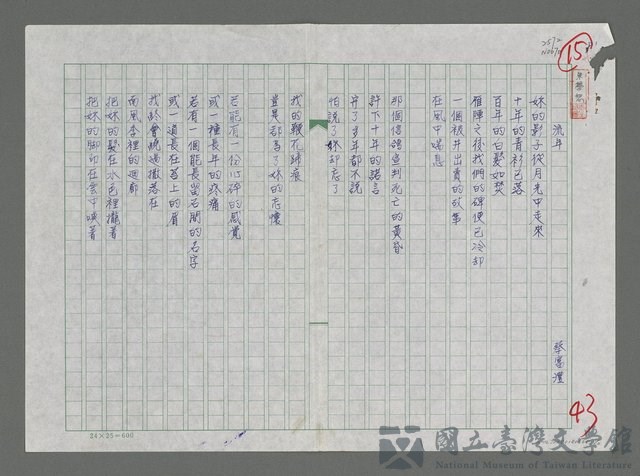 流年
妳的影子從月光中走來
十年的青衫已落
百年的白髮如焚
雁陣之後我們的碑便已冷却
一個被井出賣的故事
在風中喘息
那個信鴿宣判死亡的黃昏
許下十年的諾言
弃了多年都不說
怕說了妳却忘了
我的鞭花歸痕
豈是都為了妳的忘懷
若能有一份心碎的感覺
或一種長年的疼痛
若有一個能長留石間的名字
或一道長在茗上的眉
我終會繞過撒落在
雨風季裡的迴廊
把妳的髮在水色裡攏着
把妳的腳印在雲中喚着
15
43
24×25=600
國立臺灣文學館
National Museum of Taiwan Literature